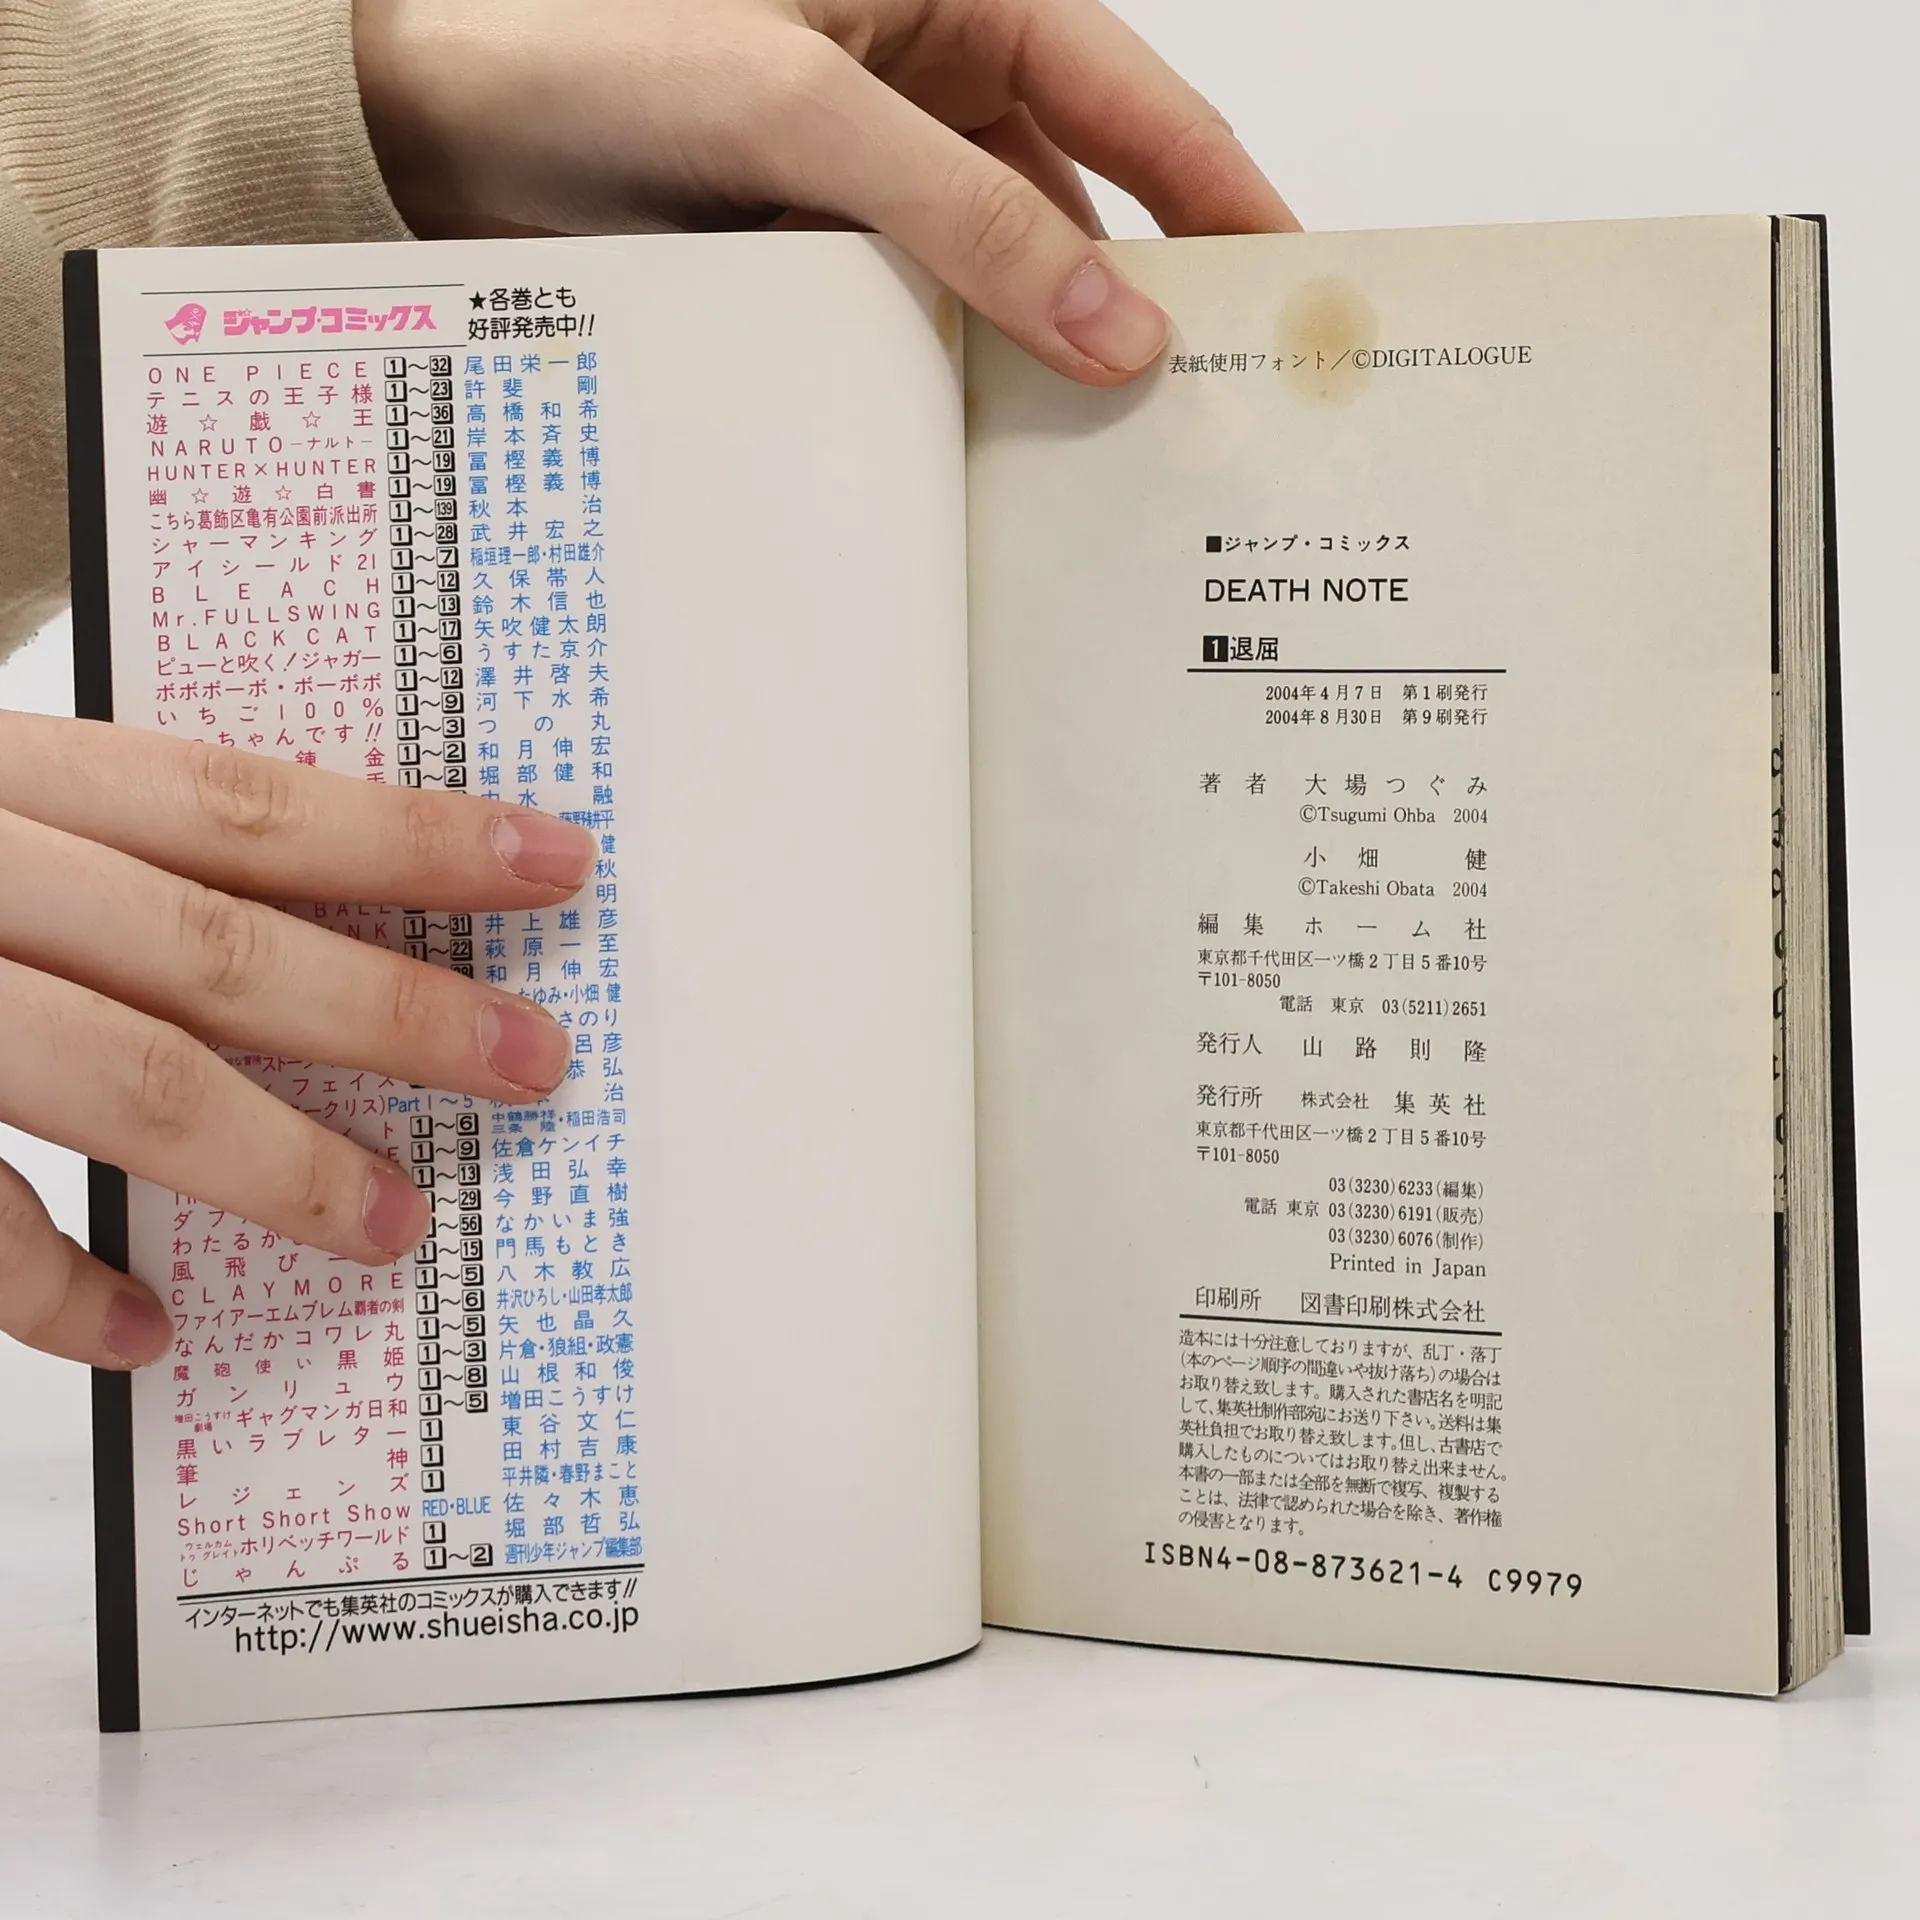 ジャンプ・コミックス
★各巻とも
好評発売中!!
ONE PIECE 1～32 尾田栄一郎
テニスの王子様 1～23 許斐剛
遊☆戯☆王 1～36 高橋和希
NARUTO―ナルト― 1～21 岸本斉史
HUNTER×HUNTER 1～19 冨樫義博
幽☆遊☆白書 1～19 冨樫義博
こちら葛飾区亀有公園前派出所 1～139 秋本治
シャーマンキング 1～28 武井宏之
アイシールド21 1～7 稲垣理一郎・村田雄介
BLEACH 1～12 久保帯人
Mr.FULLSWING 1～13 鈴木信也
BLACK CAT 1～17 矢吹健太朗
ピューと吹く!ジャガー 1～6 うすた京介
ボボボーボ・ボーボボ 1～12 澤井啓夫
いちご100% 1～9 河下水希
ちゃんです!! 1～3 つの丸
錬金 1～2 和月伸宏
1～2 堀部健和
水融
藤野耕平
健
秋
明
BALL
1～31 井上雄彦
1～22 萩原一至
和月伸宏
たゆみ・小畑健
さのり
呂彦
恭弘
フェイス 治
ークリス)Part1～5 中鶴勝祥 三条陸・稲田浩司
ト 1～6 佐倉ケンイチ
1～9 浅田弘幸
～13 今野直樹
～29 なかいま強
～56 門馬もとき
わたるが 1～15 八木教広
風飛び 1～5 井沢ひろし・山田孝太郎
CLAYMORE 1～6 矢也晶久
ファイアーエムブレム覇者の剣 1～5 片倉・狼組・政憲
なんだかコワレ丸 1～3 山根和俊
魔砲使い黒姫 1～8 増田こうすけ
ガンリュウ 1～5 東谷文仁
増田こうすけ劇場ギャグマンガ日和 1 田村吉康
黒いラブレター 1 平井隣・春野まこと
筆神 1 佐々木恵
レジェンズ RED・BLUE 堀部哲弘
Short Short Show 1 週刊少年ジャンプ編集部
ウェルカムトゥグレイトホリベッチワールド 1～2
じゃんぷる
インターネットでも集英社のコミックスが購入できます!!
http://www.shueisha.co.jp
表紙使用フォント／©DIGITALOGUE
■ジャンプ・コミックス
DEATH NOTE
1退屈
2004年4月7日 第1刷発行
2004年8月30日 第9刷発行
著者 大場つぐみ
©Tsugumi Ohba 2004
小畑健
©Takeshi Obata 2004
編集 ホーム社
東京都千代田区一ツ橋2丁目5番10号
〒101-8050
電話 東京 03(5211)2651
発行人 山路則隆
発行所 株式会社 集英社
東京都千代田区一ツ橋2丁目5番10号
〒101-8050
03(3230)6233(編集)
電話 東京 03(3230)6191(販売)
03(3230)6076(制作)
Printed in Japan
印刷所 図書印刷株式会社
造本には十分注意しておりますが、乱丁・落丁
(本のページ順序の間違いや抜け落ち)の場合は
お取り替え致します。購入された書店名を明記
して、集英社制作部宛にお送り下さい。送料は集
英社負担でお取り替え致します。但し、古書店で
購入したものについてはお取り替え出来ません。
本書の一部または全部を無断で複写、複製する
ことは、法律で認められた場合を除き、著作権
の侵害となります。
ISBN4-08-873621-4 C9979